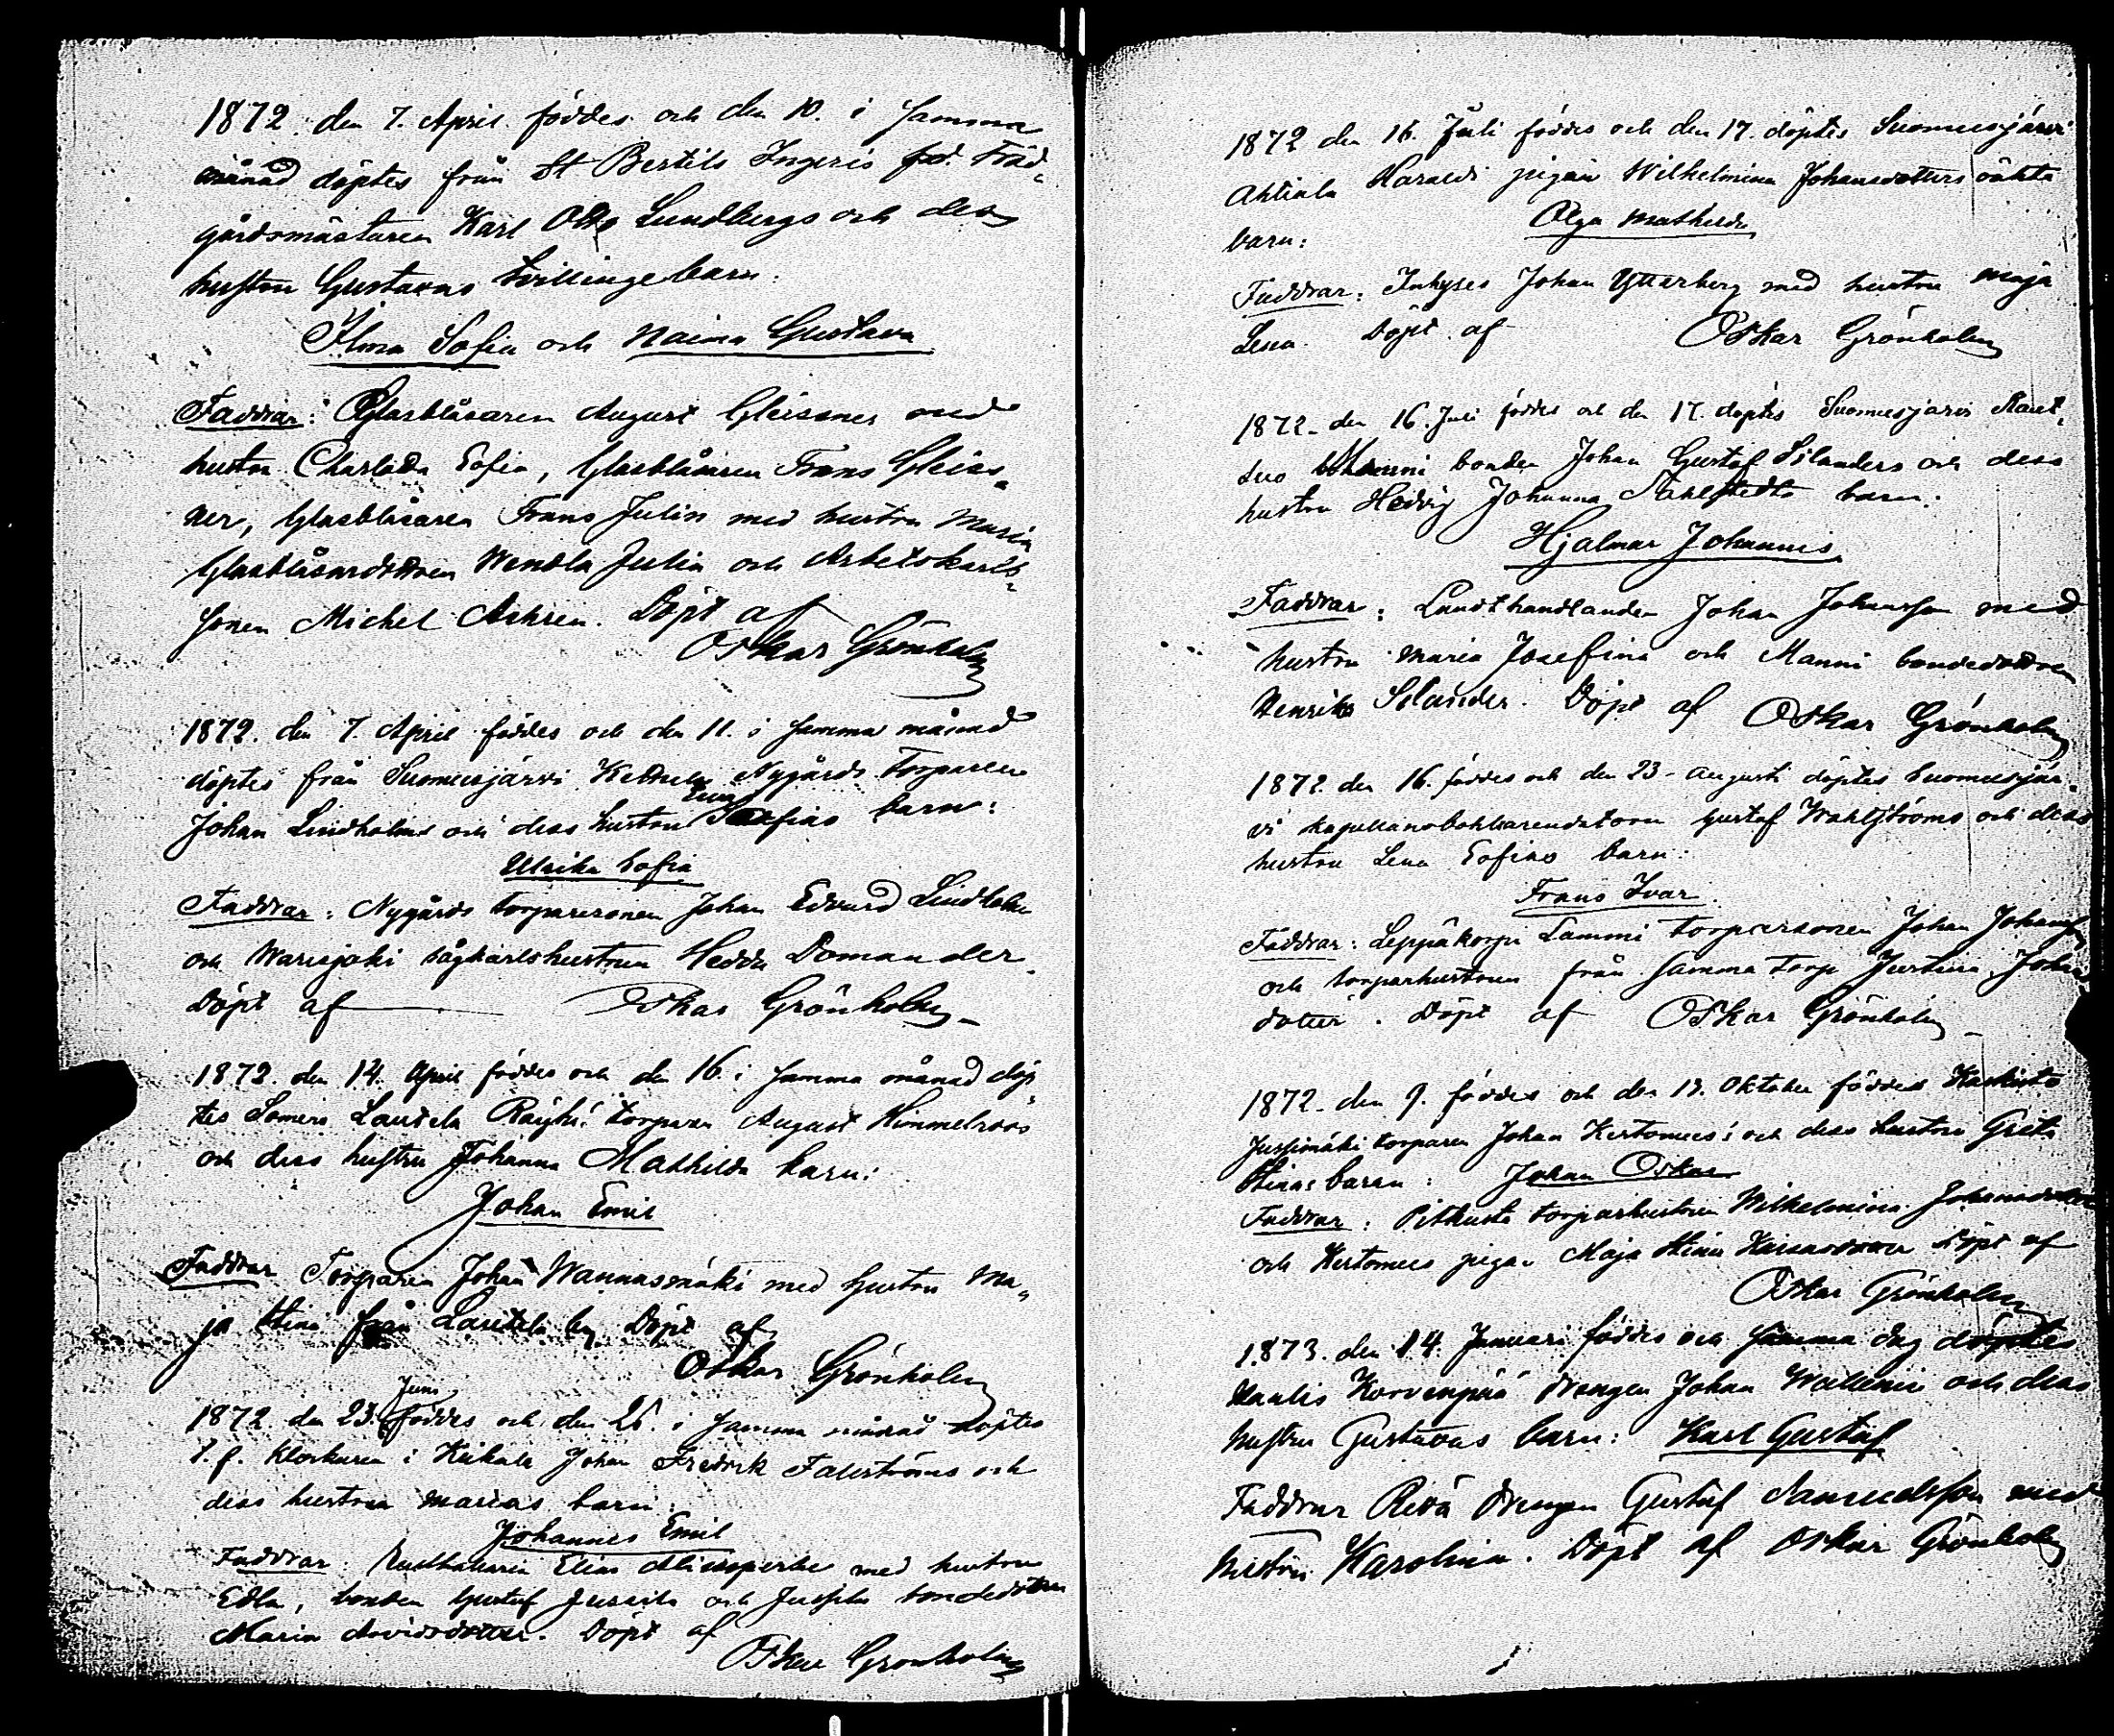 1872. den 7. April föddes och den 10. i samma
månad döptes från St Bertils Ingeris fod. Träd-
gårdsmästaren Karl Otto Lundbergs och dess
hustru Gustavas tvillingebarn:
Ilma Sofia och Naima Gustava
Faddrar: Glasblåsaren August Gleisner med
hustru Charlotta Sofia, Glasblåsaren Frans Gleis-
ner, Glasblåsaren Frans Julin med hustru Maria
Glasblåsardottren Wendla Julin och Arbetskarls-
sonen Michel Achrén. Döpt af
Oskar Grönholm
1872. den 7. April föddes och den 11. i samma månad
döptes från Suomusjärvi Nygårds Torparen
Johan Lindholms och dess hustru Eva Sofias barn:
Ulrika Sofia
Faddrar: Nygårds torparesonen Johan Edvard Lindholm
och Warisjoki sågkarlshustrun Hedda Domander.
Döpt af Oskar Grönholm
1872. den 14. April föddes och den 16. i samma månad döp
tes Somero Lautela Räyhä torparen August Himmelroos
och dess hustru Johanna Mathilda barn:
Johan Emil
Faddrar Torparen Johan Wannasmäki med hustru Ma-
ja Stina från Lautela by Döpt af
Oskar Grönholm
1872. den 23. Juni föddes och den 26. i samma månad döptes
t.f. klockaren i Kiikala Johan Fredrik Falströms och
dess hustrus Marias barn:
Johannes Emil
Faddrar: Rusthållaren Elias med hustru
Edla, bonden Gustaf Jussila och Jussila bondedottren
Maria Davidsdotter. Döpt af
Oskar Grönholm
1872 den 16. Juli föddes och den 17. döptes Suomusjärvi
Ahtiala Haraldi pigan Wilhelmina Johansdotters oäkta
barn: Olga Mathilda
Faddrar: Inhyses Johan Ytterberg med hustru Maja
Lena. Döpt af Oskar Grönholm
1872. den 16. Juli föddes och den 17. döptes Suomusjärvi
suo Manni bonden Johan Gustaf Silanders och dess
hustru Hedvig Johanna Stahlstedts barn:
Hjalmar Johannes
Faddrar: Landthandlanden Johan Johansson med
hustru Maria Josefina och Manni bondedottren
Henrika Silander. Döpt af Oskar Grönholm
1872. den 16. föddes och den 23. Augusti döptes Suomusjär-
vi kapellansbohlsarendatorn Gustaf Wahlströms och dess
hustru Lena Sofias barn:
Frans Ivar
Faddrar: Leppäkorpi Lammi torparsonen Johan Johansson
och torparhustrun från samma torp Justina Johans
dotter. Döpt af Oskar Grönholm
1872. den 9. föddes och den 13. Oktober föddes
Jussinmäki torparen Johan Kertomees och dess hustru Greta
Stinas barn: Johan Oskar
Faddrar: Pitkusta torparhustrun Wilhelmina Johansdotter
och Kertomees pigan Maja Stina Döpt af
Oskar Grönholm
1873. den 14. Januari föddes och samma dag döptes
Korvenpää drengen Johan Wallenii och dess
hustru Gustavas barn: Karl Gustaf
Faddrar drengen Gustaf Samuelsson med
hustru Karolina. Döpt af Oskar Grönholm